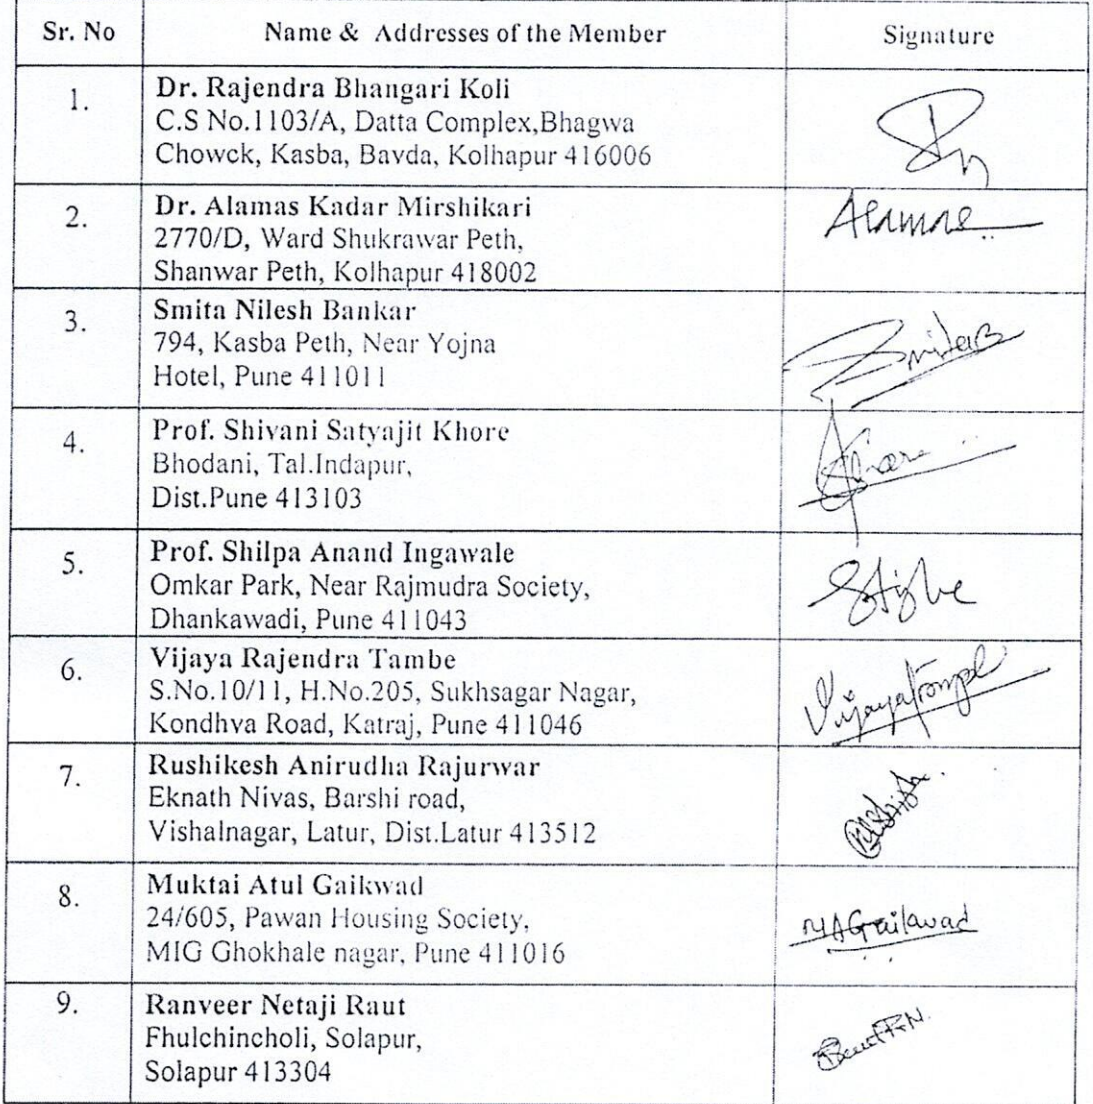 Sr. No Name & Addresses of the Member Signature
1. Dr. Rajendra Bhangari Koli
C.S No.1103/A, Datta Complex,Bhagwa
Chowck, Kasba, Bavda, Kolhapur 416006
2. Dr. Alamas Kadar Mirshikari
Alamas
2770/D, Ward Shukrawar Peth,
Shanwar Peth, Kolhapur 418002
3. Smita Nilesh Bankar
794, Kasba Peth, Near Yojna
SmitaB
Hotel, Pune 411011
4. Prof. Shivani Satyajit Khore
Bhodani, Tal.Indapur,
Dist.Pune 413103
5. Prof. Shilpa Anand Ingawale
Omkar Park, Near Rajmudra Society,
Dhankawadi, Pune 411043
6. Vijaya Rajendra Tambe
S.No.10/11, H.No.205, Sukhsagar Nagar,
Kondhva Road, Katraj, Pune 411046
7. Rushikesh Anirudha Rajurwar
Eknath Nivas, Barshi road,
Vishalnagar, Latur, Dist.Latur 413512
8. Muktai Atul Gaikwad
24/605, Pawan Housing Society,
MAGaikwad
MIG Ghokhale nagar, Pune 411016
9. Ranveer Netaji Raut
Fhulchincholi, Solapur,
Solapur 413304